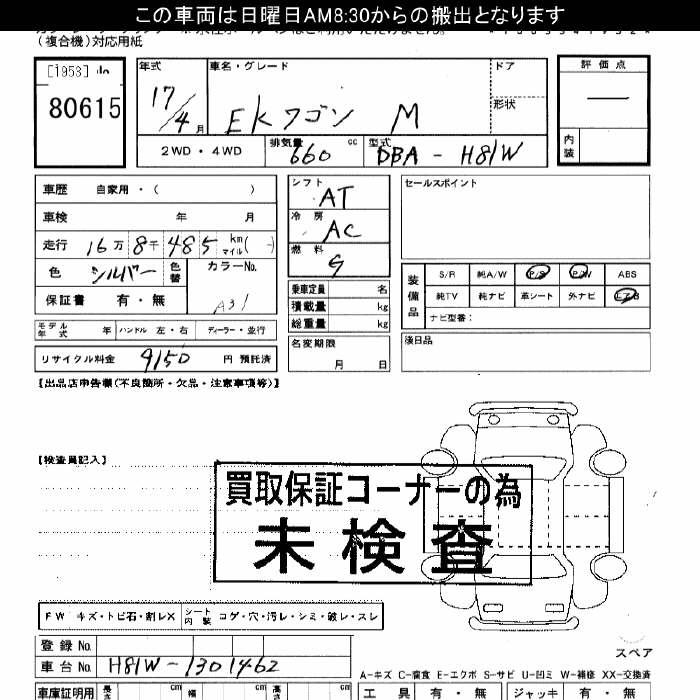 この車両は日曜日AM8:30からの搬出となります
(複合機)対応用紙
[1953]
80615
年式 車名・グレード ドア 評価点
17/4 月 EKワゴン M 形状 —
2WD・4WD 排気量 660 cc 型式 DBA - H81W 内装
車歴 自家用・( )
車検 年 月
走行 16万8千485 km マイル( )
色 シルバー 色替 カラーNo. A31
保証書 有・無
モデル年式 年 ハンドル 左・右 ディーラー・並行
リサイクル料金 9150 円 預託済
シフト AT
冷房 AC
燃料 G
乗車定員 名
積載量 kg
総重量 kg
名変期限 月 日
セールスポイント
装備品 S/R 純A/W P/S P/W ABS
純TV 純ナビ 革シート 外ナビ エアB
ナビ型番:
後日品
【出品店申告欄(不良箇所・欠品・注意事項等)】
【検査員記入】
買取保証コーナーの為
未検査
FW キズ・トビ石・割レX シート内装 コゲ・穴・汚レ・シミ・破レ・スレ
登録No.
車台No. H81W-1301462
スペア
A-キズ C-腐食 E-エクボ S-サビ U-凹ミ W-補修 XX-交換済
車庫証明用 長さ cm 幅 cm 高さ cm 工具 有・無 ジャッキ 有・無